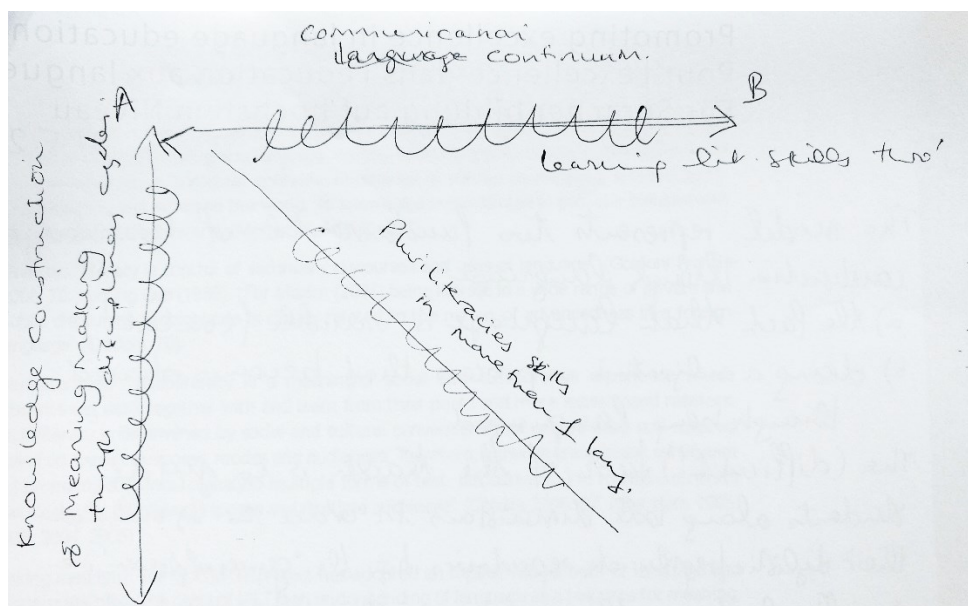 communicanai
language continuum.
A
B
learning lit. skills thro'
Knowledge construction
& meaning making
through disciplines cycles
Pluriliteracies skills
in more than 1 lang.